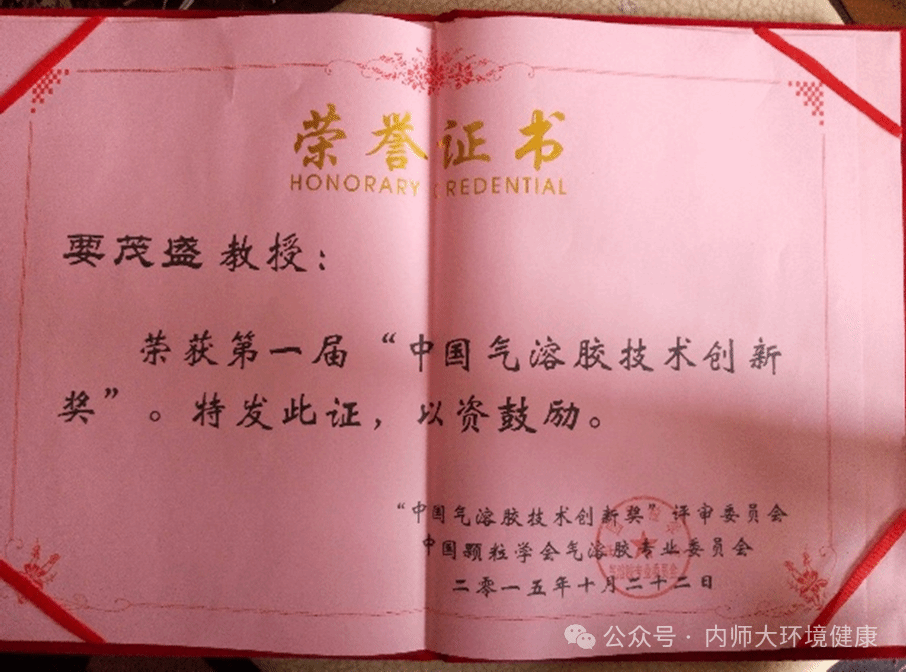 荣誉证书
HONORARY CREDENTIAL
要茂盛 教授：
荣获第一届“中国气溶胶技术创新
奖”。特发此证，以资鼓励。
“中国气溶胶技术创新奖”评审委员会
中国颗粒学会气溶胶专业委员会
二零一五年十月二十二日
公众号·内师大环境健康